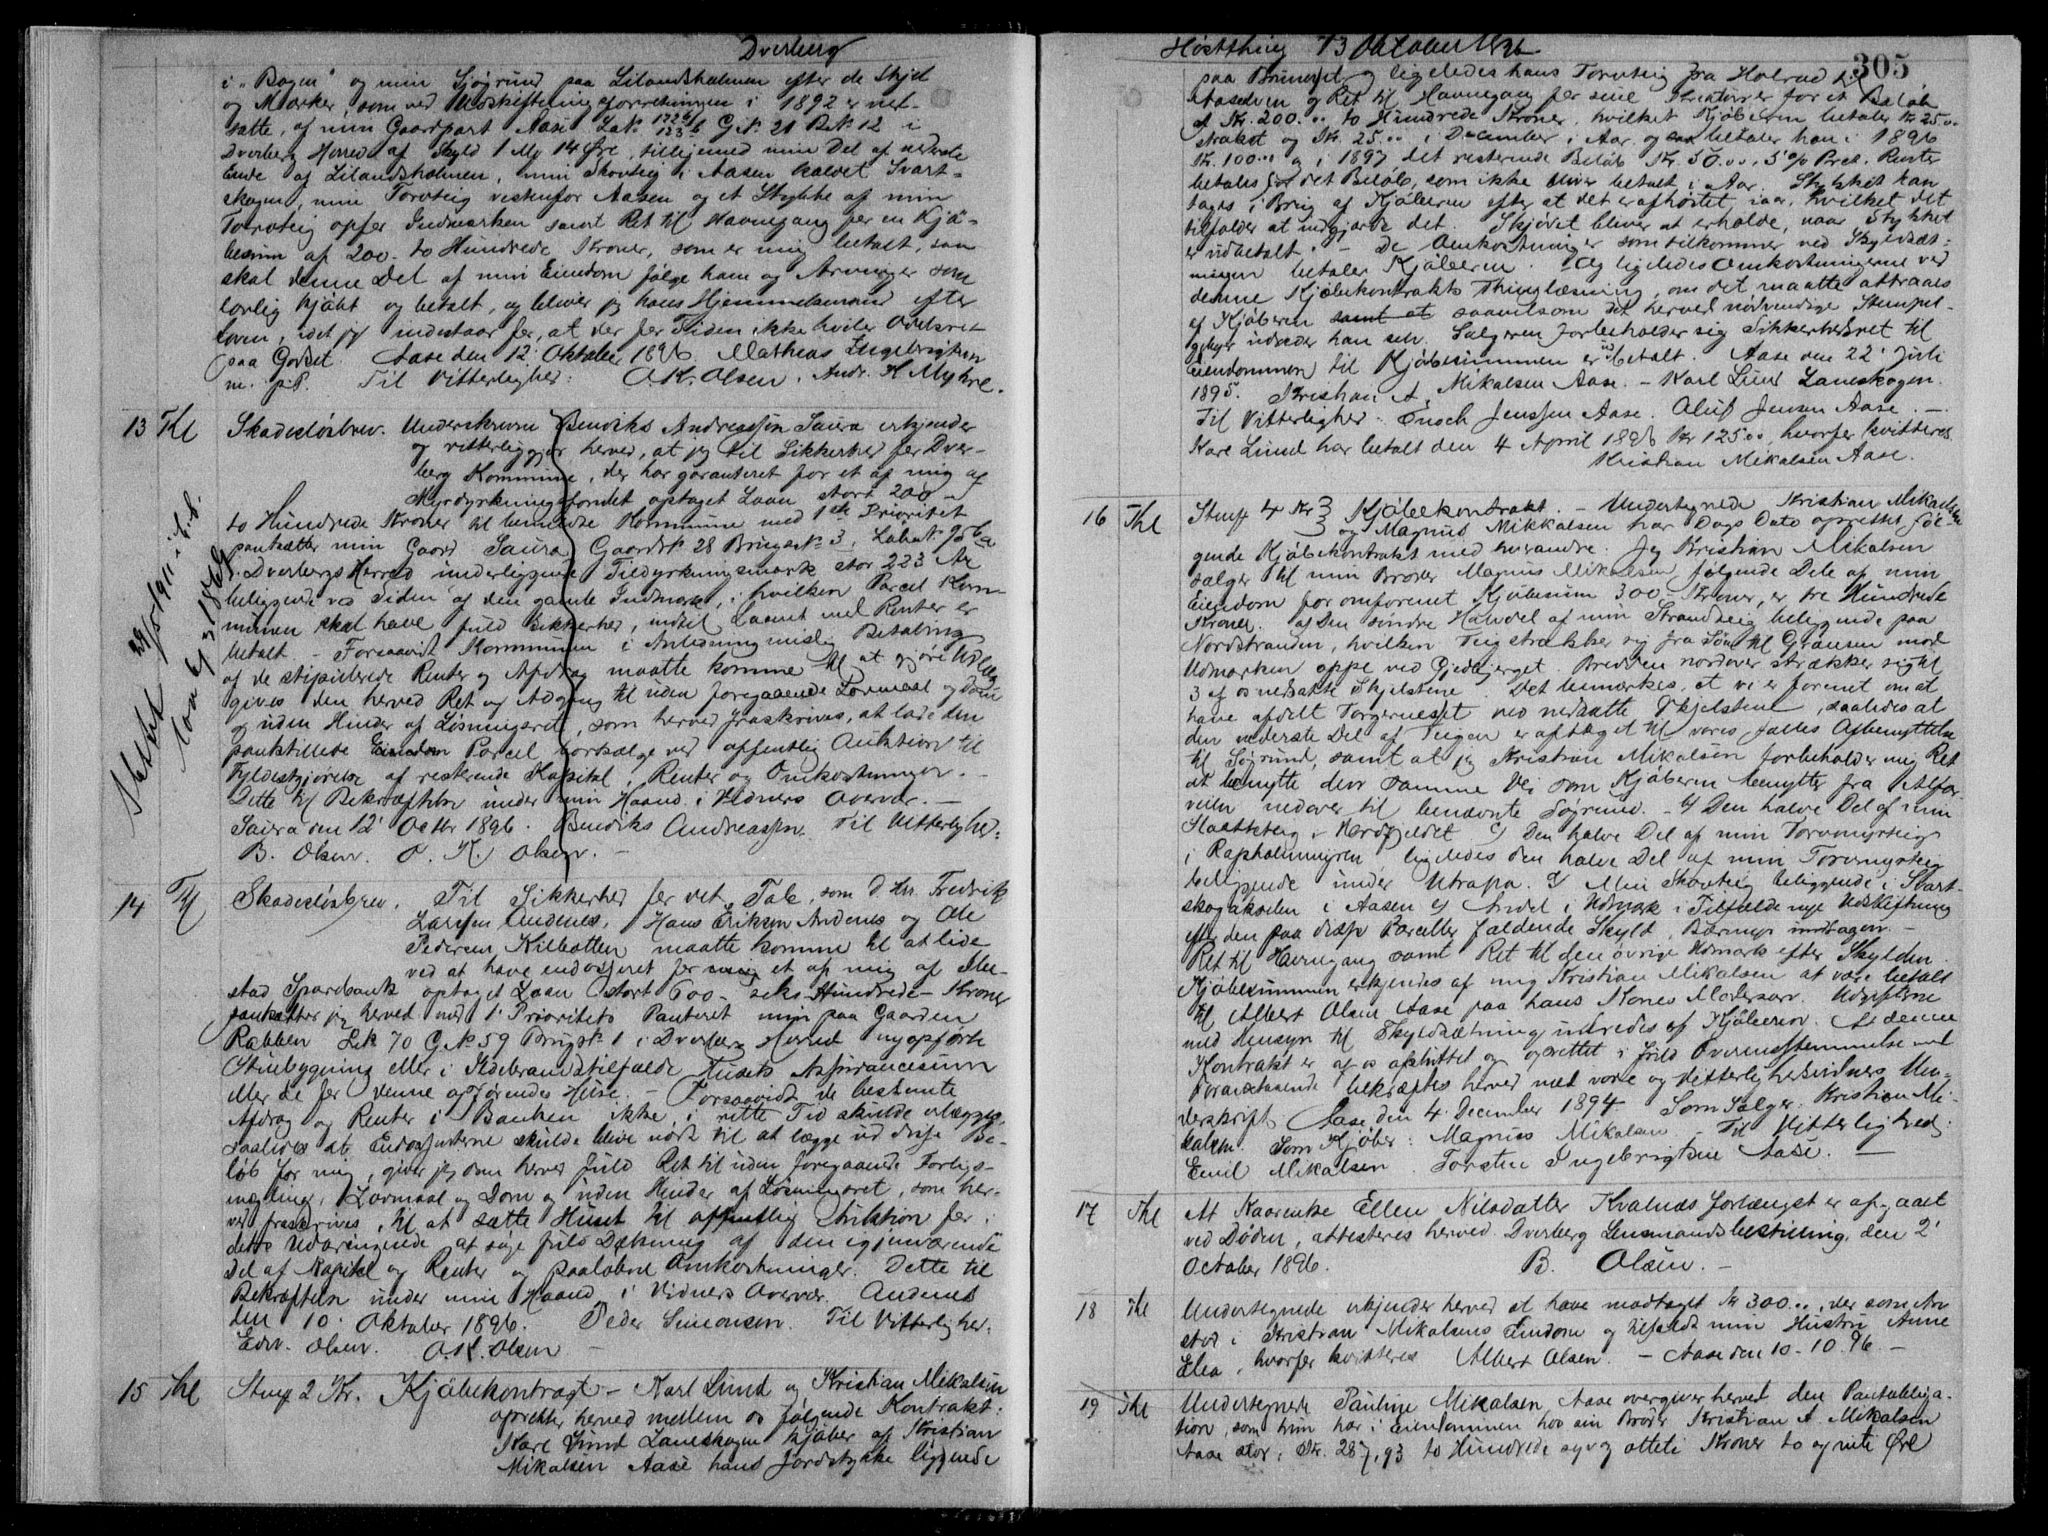 Dverberg
i "Bogen" og min Sjøgrund paa Lilandsholmen efter de Skjel
og Mærker, som ved Udskiftningsforretningen i 1892 er ned-
satte, af min Gaardpart Aase G.No. 21 B.No. 12 i
Dverberg Herred af Skyld 1 Mk 14 Øre, tilligemed min Del af nederste
Ende af Lilandsholmen, min Skovteig i Aasen kaldet Svart-
skogen, min Torvteig vestenfor Aasen og et Stykke af min
Torvteig opfor Indmarken samt Ret til Havnegang for en Kjø-
besum af 200 - to Hundrede Kroner, som er mig betalt, saa
skal denne Del af min Eiendom følge ham og Arvinger som
lovlig kjøbt og betalt, og bliver jeg hans Hjemmelsmand efter
Loven, idet jeg indestaar for, at der for Tiden ikke hviler Odelsret
paa Godset. Aase den 12' Oktober 1896. Mathias Ingebrigtsen
m. p. P. Til Vitterlighed: O. K. Olsen. Andr. H. Myhre.
13 Thl Skadesløsbrev. Underskrevne Bendiks Andreassen Saura erkjender
og vitterliggjør herved, at jeg til Sikkerhed for Dver-
berg Kommune, der har garanteret for et af mig af
Myrdyrkningsfondet optaget Laan stort 200 -
to Hundrede Kroner til bemeldte Kommune med 1ste Prioritet
pantsætter min Gaard Saura Gaardsno. 28 Brugsno. 3, Løbeno. 95 b a
i Dverbergs Herred underliggende Tildyrkningsmark stor 223 Ar
beliggende ved Siden af den gamle Indmark, i hvilken Parcel Kom-
munen skal have fuld Sikkerhed, indtil Laanet med Renter er
betalt. - Forsaavidt Kommunen i Anledning mislig Betaling
af de stipulerede Renter og Afdrag maatte komme til at gjøre Udlæg
gives den herved Ret og Adgang til uden foregaaende Lovmaal og Dom
og uden Hinder af Løsningsret, som herved fraskrives, at lade den
pantstillede Eiendom Parcel bortsælge ved offentlig Auktion til
Fyldestgjørelse af resterende Kapital, Renter og Omkostninger. -
Dette til Bekræftelse under min Haand i Vidners Overvær. -
Saura den 12' Octbr 1896. Bendiks Andreassen. Til Vitterlighed:
B. Olsen. O. K. Olsen. -
Slettet 29/5 1911 i h. t.
Lov 6/3 1869
14 Thl Skadesløsbrev. Til Sikkerhed for det Tab, som d'Hrr. Fredrik
Larssen Andenes, Hans Eriksen Andenes og Ole
Pedersen Kilbotten maatte komme til at lide
ved at have endosseret for mig et af mig af
stad Sparebank optaget Laan stort 600 - seks Hundrede - Kroner
pantsætter jeg herved med 1' Prioritets Panteret min paa Gaarden
Rabben L.No. 70 G.No. 59 Brugsno. 1 i Dverberg Herred nyopførte
Stuebygning eller i Ildebrandstilfælde Husets Assurancesum
eller de for denne opførendes Huse. - Forsaavidt de bestemte
Afdrag og Renter i Banken ikke i rette Tid skulde erlægges,
saaledes at Endossenterne skulde blive nødt til at lægge ud disse Be-
løb for mig, giver jeg dem herved fuld Ret til uden foregaaende Forligs-
mægling, Lovmaal og Dom og uden Hinder af Løsningsret, som her-
ved fraskrives, til at sætte Huset til offentlig Auktion for i
dets Udbringende at søge fuld Dækning af den igjenværende
Del af Kapital og Renter og paaløbne Omkostninger. Dette til
Bekræftelse under min Haand i Vidners Overvær. Andenes
den 10' Oktober 1896. Peder Simonsen. Til Vitterlighed:
Edv. Olsen. O. K. Olsen -
15 Thl Stemp 2 Kr. Kjøbekontragt - Karl Lund og Kristian Mikalsen
opretter herved mellem os følgende Kontrakt:
Karl Lund Laneskogen kjøber af Kristian
Mikalsen Aase hans Jordstykke liggende
Høstthing 13 Oktober 1896
305
paa og ligeledes hans Torvteig fra Holrud til
Aaselven og Ret til Havnegang for sine Kreaturer for et Beløb
af Kr. 200.00 to Hundrede Kroner, hvilket Kjøberen betaler Kr 25.00
strakst og Kr. 25.00 i December i Aar, og saa betaler han i 1896
Kr. 100.00 og i 1897 det resterende Beløb Kr. 50.00, 5 % Pret. Renter
betales for det Beløb, som ikke bliver betalt i Aar. Stykket kan
tages i Brug af Kjøberen efter at det er afhøstet iaar, hvilket det
tilfalder at indgjærde det. Skjødet bliver at erholde, naar Stykket
er udbetalt. - De Omkostninger som tilkommer ved Skyldsæt-
ningen betaler Kjøberen. Og ligeledes Omkostningerne ved
denne Kjøbekontrakts Thinglæsning, om det maatte attraaes
af Kjøberen samt at saavelsom det herved nødvendige Stempel-
gebyr udreder han selv. Sælgeren forbeholder sig Sikkerhedsret til
Eiendommen til Kjøbesummen er udbetalt. Aase den 22' Juli
1895. Kristian A. Mikalsen Aase. - Karl Lund Laneskogen.
Til Vitterlighed: Enoch Jenssen Aase. Oluf Jensen Aase. -
Karl Lund har betalt den 4 April 1896 Kr 125.00, hvorfor kvitteres
Kristian Mikalsen Aase.
16 Thl Stemp 4 Kr Kjøbekontrakt. - Undertegnede Kristian Mikalsen
og Magnus Mikkalsen har Dags Dato oprettet føl-
gende Kjøbekontrakt med hverandre. Jeg Kristian Mikalsen
sælger til min Broder Magnus Mikalsen følgende Dele af min
Eiendom for omforenet Kjøbesum 300 Kroner, er tre Hundrede
Kroner. a/ Den søndre Halvdel af min Strandteig beliggende paa
Nordstranden, hvilken Teig strækker sig fra Søen til Grænsen mod
Udmarken oppe ved Gjedbjerget. Bredden nordover strækker sig til
3 af os nedsatte Skjelstene. Det bemærkes, at vi er forenet om at
have afdelt Torgerneset ved nedsatte Skjelstene, saaledes at
den nederste Del af Teigen er aftaget til vores fælles Afbenyttelse
til Søgrund, samt at jeg Kristian Mikalsen forbeholder mig Ret
at benytte den samme Vei som Kjøberen benytter fra Alfar-
veien nedover til benævnte Søgrund. - b/ Den halve Del af min
Slaatteteig i c/ Den halve Del af min Torvmyrteig
i Rapholmmyren ligeledes den halve Del af min Torvmyrteig
beliggende under Utrapa. d/ Min Skovteig beliggende i Svart-
skogskolen i Aasen e/ Andel i Udmark i Tilfælde nye Udskiftning
efter den paa disse Parceller faldende Skyld, Bærmyr undtagen. -
Ret til Havnegang samt Ret til den øvrige Udmark efter Skylden.
Kjøbesummen erkjendes af mig Kristian Mikalsen at være betalt
til Albert Olsen Aase paa hans Kones Modersarv. Udgifterne
med Hensyn til Skyldsætning udredes af Kjøberen. At denne
Kontrakt er af os afsluttet og oprettet i fuld Overensstemmelse med
Foranstaaende bekræftes herved med vore og Vitterlighedsvidners Un-
derskrift. Aase, den 4. December 1894. Som Sælger: Kristian Mi-
kalsen. Som Kjøber: Magnus Mikalsen - Til Vitterlighed:
Emil Mikalsen. Torsten Ingebrigtsen Aase. -
17 Thl At Kaarenke Ellen Nilsdatter Kvalnæs forlængst er afgaaet
ved Døden, attesteres herved. Dverberg Lensmandsbestilling, den 2'
October 1896. B. Olsen. -
18 Thl Undertegnede erkjender herved at have modtaget Kr 300.00, der som Arv
stod i Kristian Mikalsens Eiendom og tilfaldt min Hustru Anne
Elea, hvorfor kvitteres Albert Olsen. - Aase den 10-10-96. -
19 Thl Undertegnede Pauline Mikalsen Aase overgiver herved den Pantobliga-
tion, som hun har i Eiendommen hos sin Broder Kristian A. Mikalsen
Aase stor, Kr. 287,93 to Hundrede syv og otteti Kroner to og niti Øre